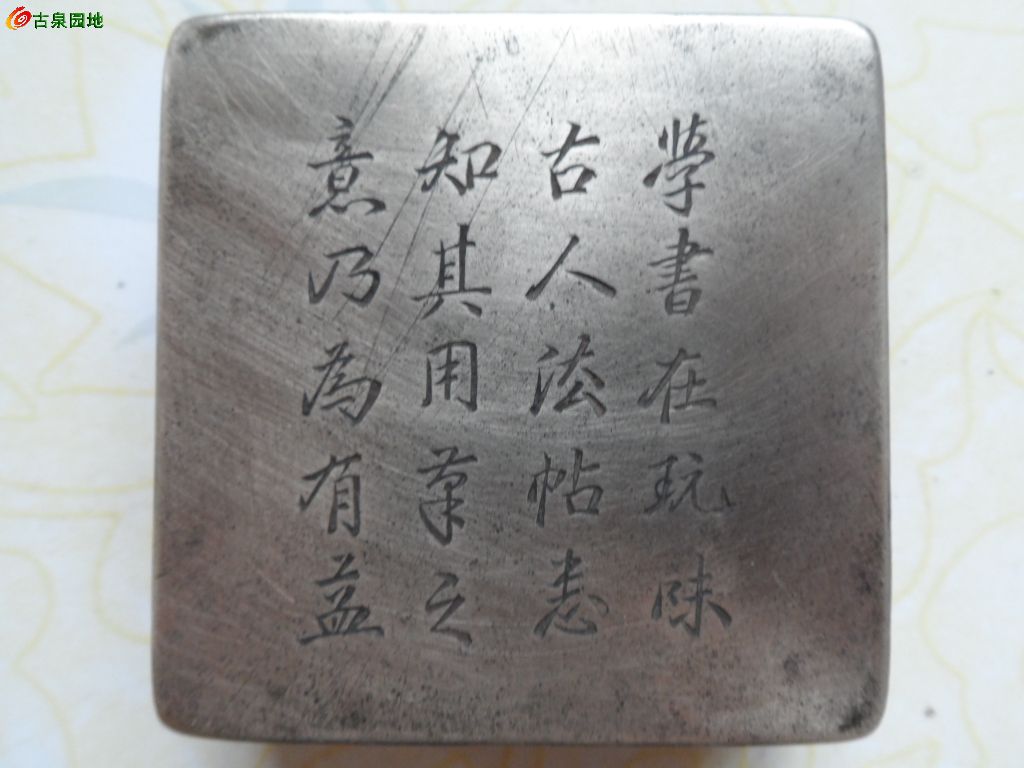 古泉园地
學書在玩味
古人法帖悉
知其用筆之
意乃為有益